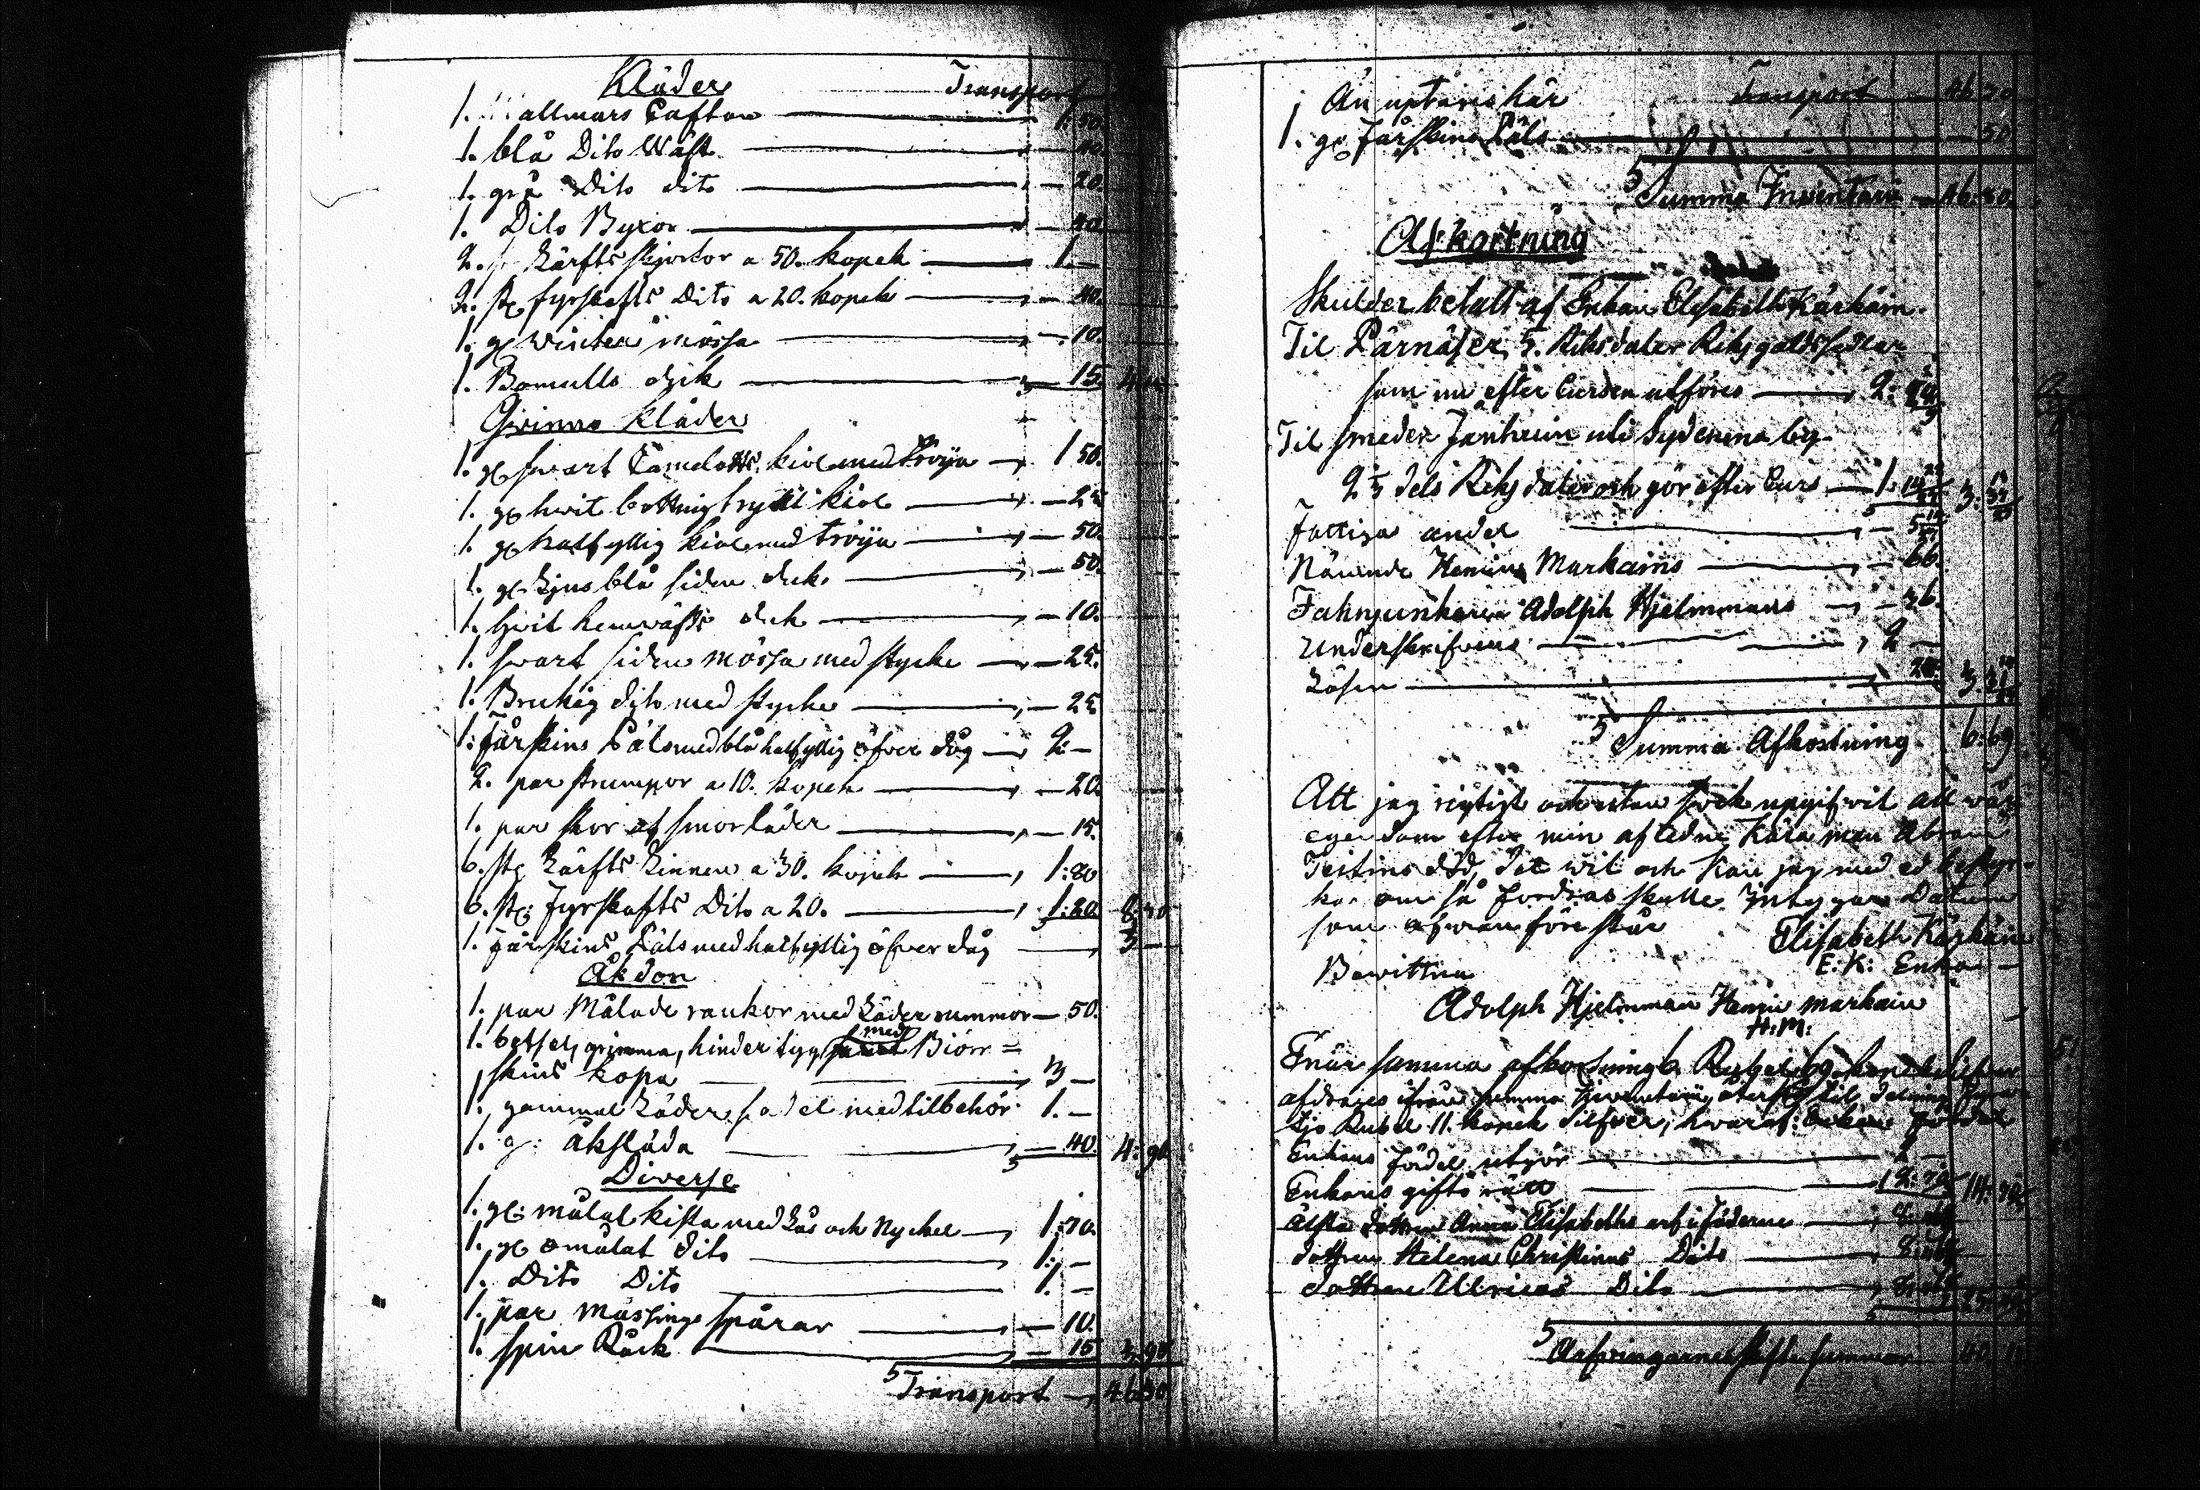 Kläder Transport
1. Wallmars Caftan — 1:50.
1. blå Dito Wäst — 40.
1. grå Dito dito — 20.
1. Dito Byxor — 40.
2. Lärfts skjortor a 50. kopek — 1.—
2. st. fyrskafts Dito a 20. kopek — 40.
1. gl winter mössa — 10.
1. Bomulls dyk — 15.
Qvinno kläder
1. gl swart Camelotts kiol med tröya — 1 50.
1. gl hwit bottnig kiol — 25
1. gl halfyllig kiol med tröya — 50.
1. gl Ljusblå siden duk — 50.
1. hwit hemwäfts duk — 10.
1. swart siden mössa med stycke — 25.
1. Brukig dito med stycke — 25
1. Fårskins Päls med blå halfyllig öfver dåg — 2.—
2. par strumpor a 10. kopek — 20.
1. par skor af smorläder — 15.
6. st. Lärfts Linnen a 30. kopek — 1:80
6. st. Fyrskafts Dito a 20. — 1:20.
1. Fårskins Päls med halfyllig öfver dåg — 3 —
Åkdon
1. par Målade rankor med Läder rummor — 50.
1. betsel, grimma, hindertyg med Biörn=
skins kopa — 3 —
1. gammal Läder sadel med tilbehör 1.—
1. g: åkslåda — 40. 4:90
Diverse
1. gl: målat kista med Lås och Nyckel — 1:70.
1. gl omålat dito — 1:—
1. Dito Dito — 1.—
1. par mässings spårar — 10.
1. spin Råck — 15 3:95
Transport — 46:30
Än uptens här Transport 46 30
1. gl Fårskins Päls — 50
Summa Inventari — 46:80.
Afkortning
Skulder betalt af Enkan Elisabeth Kärkäin.
Til Pärnäser, 5. Riksdaler Riksgäldssedlar
som nu efter Cursen utföres — 2:
Til smeden Janhuin uti Sydenma by
2 1/3 dels Riksdaler och gör efter Curs — 1:
Fattiga andel
Nämnde Henric Markains — 66.
Fahnjunkaren Adolph Hjelmmans — 36.
Underskrifvens — 2 —
Lösen
Summa Afkortning 6:69
Att jag rigtigt och utan svek upgifvit all vår
egendom efter min afledne Kära man Abram
Teitins död, det wil och kan jag med ed bestyr-
ka om så fordras skulle. Intygar Datum
som ofwan före står Elisabeth Kärkäin
E: K: Enka
Bewittna
Adolph Hjelmman Henric markain
H: M:
Enär summa afkortning 6. Rubel 69. kopek silfver
afdrages ifrån summa Inventari, återstår til delning Fyra-
tio Rubel 11. kopek Silfver, hwaraf: Enkans Fördel
Enkans fördel utgör — 2 —
Enkans gifto rätt
Älsta dottren Anna Elisabeths arf i fäderne
dottren Helena Christinas Dito
Dottren Ulricas Dito
Arfvingarnes summor 40 11